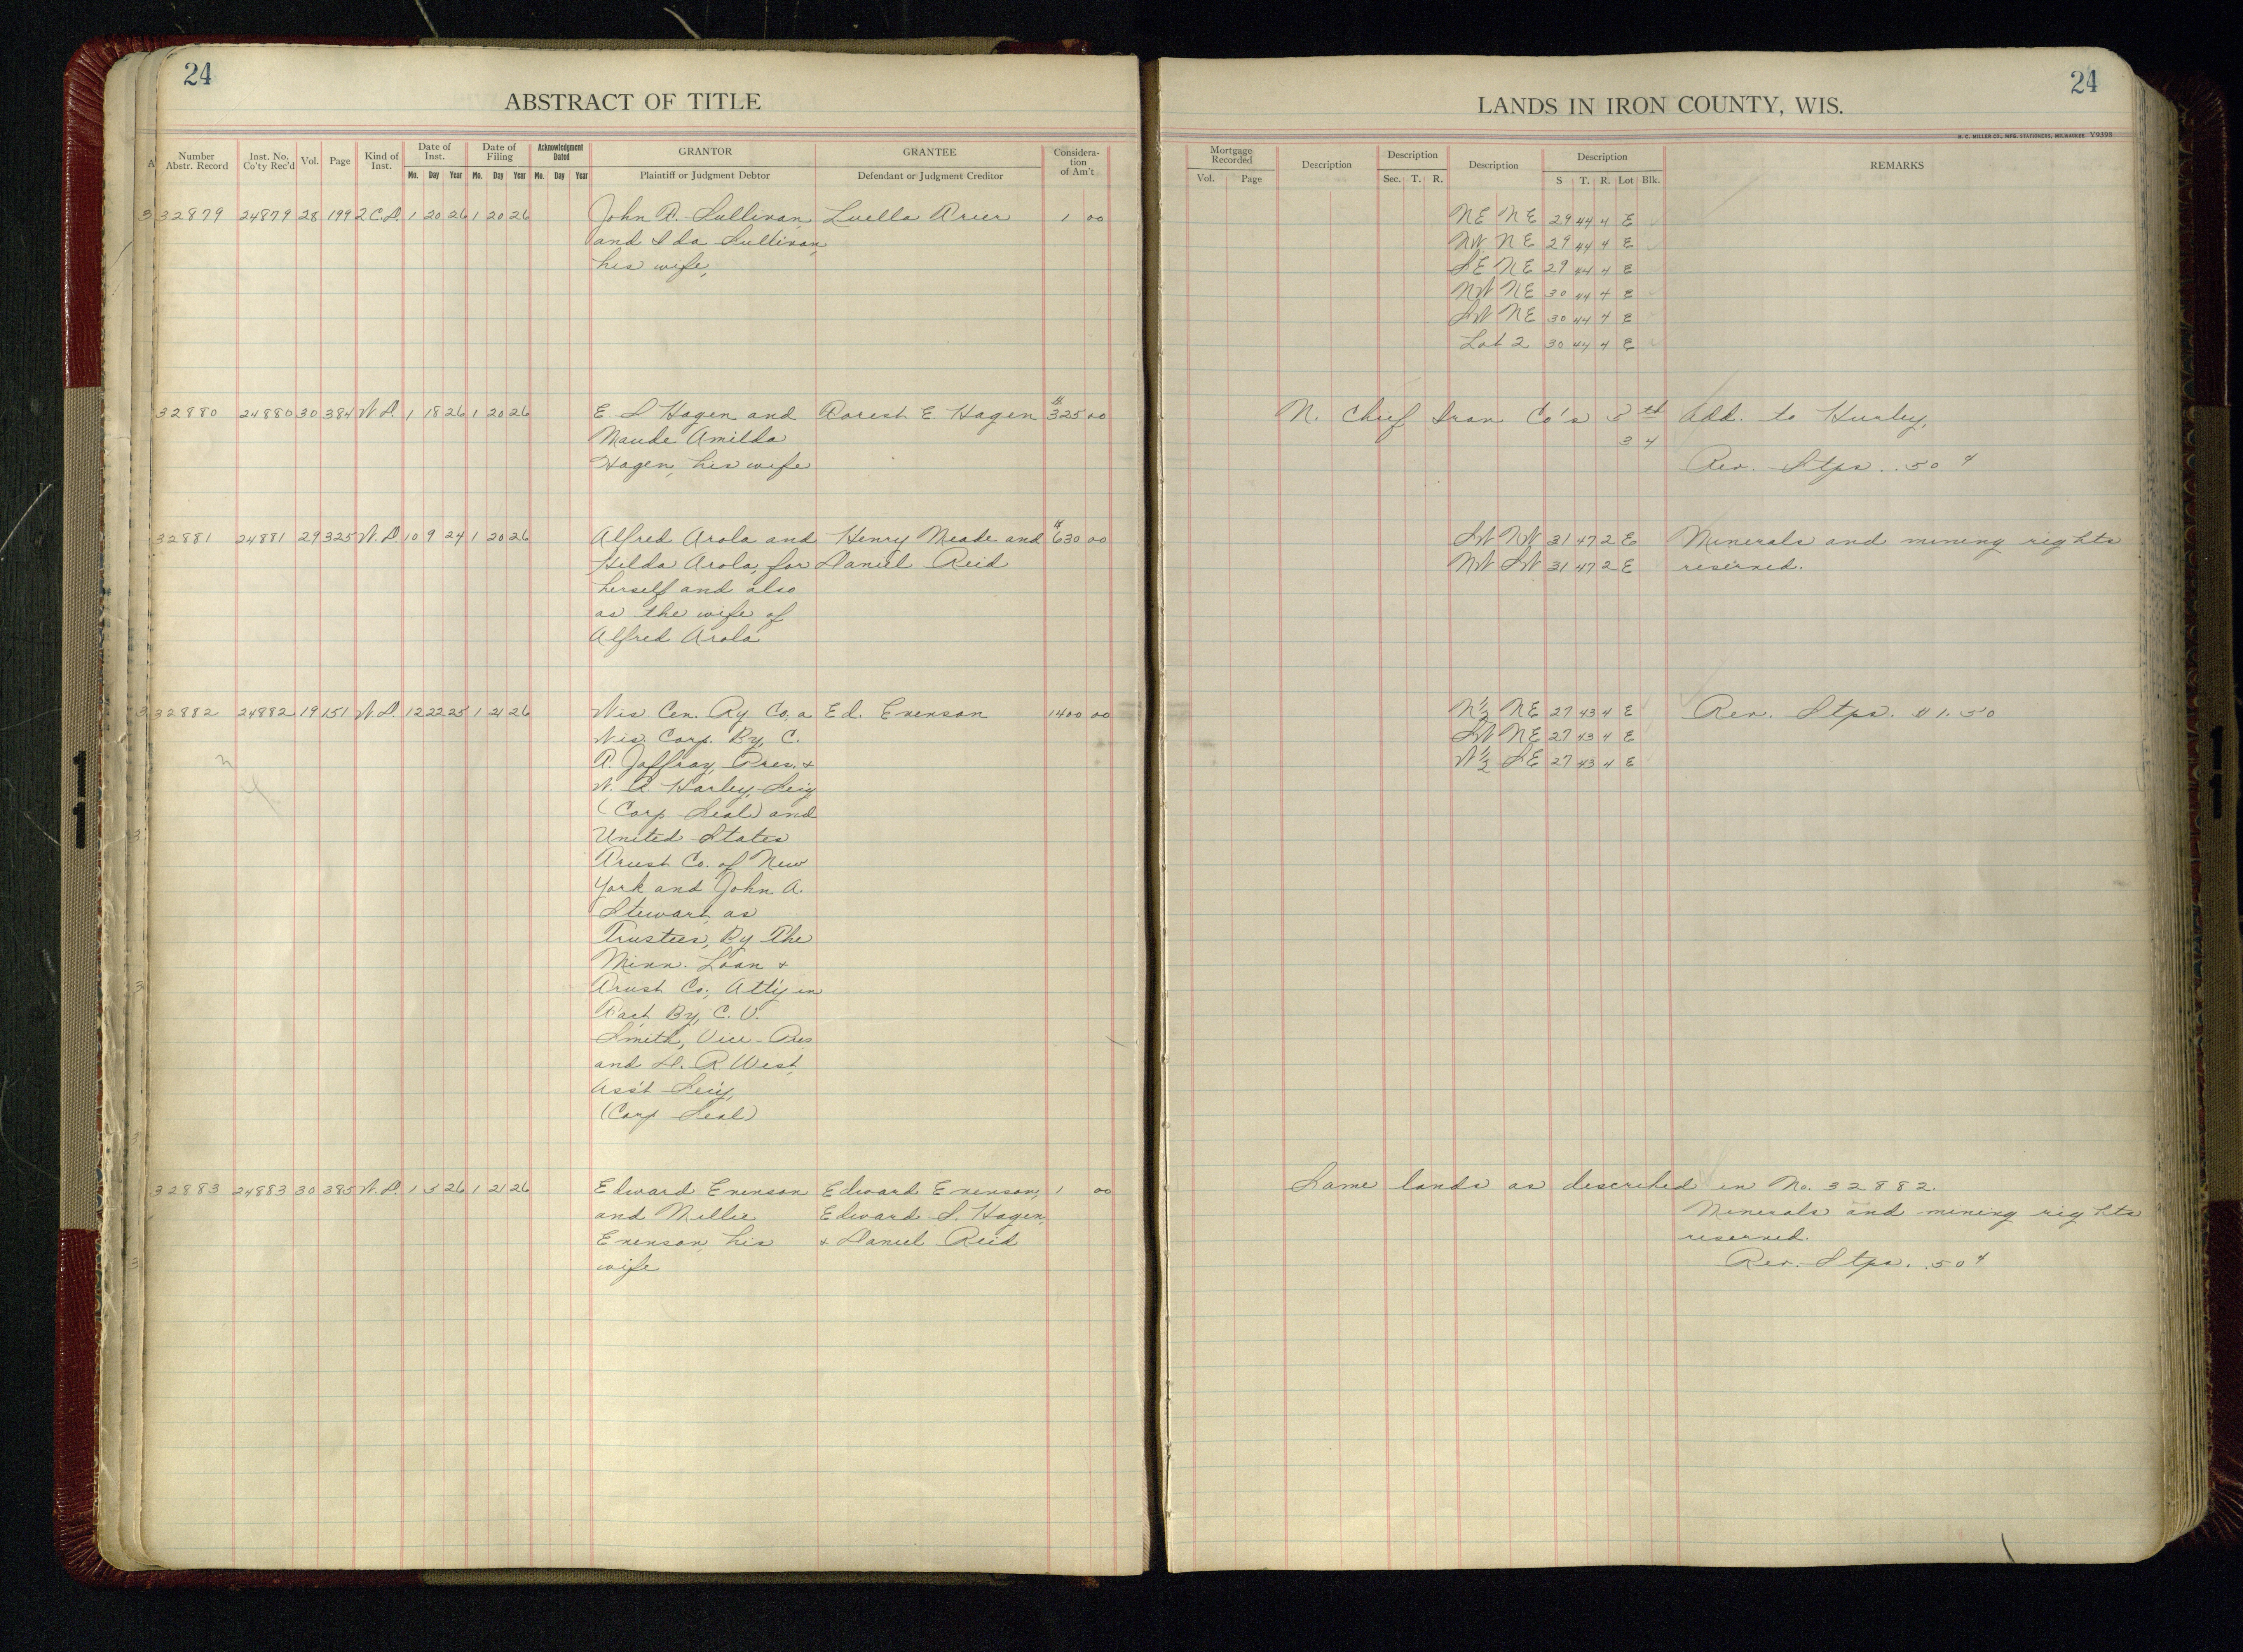 24
ABSTRACT OF TITLE
Number Abstr. Record Inst. No. Co'ty Rec'd Vol. Page Kind of Inst. Date of Inst. Date of Filing Acknowledgment Dated GRANTOR GRANTEE Considera-tion of Am't
Mo. Day Year Mo. Day Year Mo. Day Year Plaintiff or Judgment Debtor Defendant or Judgment Creditor
32879 24879 28 199 2 C.D. 1 20 26 1 20 26 John F. Sullivan, Luella 1 00
and Ida Sullivan,
his wife,
32880 24880 30 384 W.D. 1 18 26 1 20 26 E S Hagen and Forest E. Hagen $325 00
Maude Amilda
Hagen, his wife
32881 24881 29 325 W.D. 10 9 24 1 20 26 Alfred Arola and Henry Meade and $630 00
Hilda Arola, for Daniel Reid
herself and also
as the wife of
Alfred Arola
32882 24882 19 151 W.D. 12 22 25 1 21 26 Wis Cen. Ry. Co, a Ed. Evenson 1400 00
Wis Corp. By, C.
T. Jaffray, Pres. +
W. A. Harley, Sec'y
(Corp. Seal) and
United States
Trust Co. of New
York and John A.
Stewart, as
Trustees, By The
Minn. Loan +
Trust Co; Att'y in
Fact By, C. V.
Smith, Vice-Pres
and D. R West,
Ass't Sec'y,
(Corp Seal)
32883 24883 30 385 W.D. 1 5 26 1 21 26 Edward Evenson Edward Evenson, 1 00
and Nellie Edward S. Hagen,
Evenson, his + Daniel Reid
wife
24
LANDS IN IRON COUNTY, WIS.
H. C. MILLER CO., MFG. STATIONERS, MILWAUKEE Y9393
Mortgage Recorded Description Description Description Description REMARKS
Vol. Page Sec. T. R. S T. R. Lot Blk.
NE NE 29 44 4 E
NW NE 29 44 4 E
SE NE 29 44 4 E
NW NE 30 44 4 E
SW NE 30 44 4 E
Lot 2 30 44 4 E
N. Chief Iron Co's 3 rd Add. to Hurley,
3 4
Rev. Stps. .50 ¢
SW NW 31 47 2 E Minerals and mining rights
NW SW 31 47 2 E reserved.
N½ NE 27 43 4 E Rev. Stps. $1.50
SW NE 27 43 4 E
W½ SE 27 43 4 E
Same lands as described in No. 32882.
Minerals and mining rights
reserved.
Rev. Stps. .50 ¢